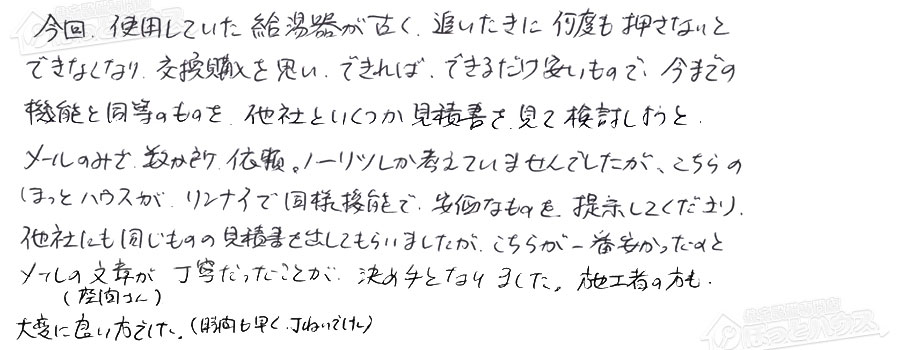 今回、使用していた給湯器が古く、追いたきに何度も押さないと
できなくなり、交換購入を思い、できれば、できるだけ安いもので、今までの
機能と同等のものを、他社といくつか見積書を見て検討しようと、
メールのみで、数か所、依頼。ノーリツしか考えていませんでしたが、こちらの
ほっとハウスが、リンナイで同様機能で、安価なものを、提示してくださり、
他社にも同じものの見積書を出してもらいましたが、こちらが一番安かったのと
メールの文章が丁寧だったことが、決め手となりました。施工者の方も、
(座間さん)
大変に良い方でした。(時間も早く、丁ねいでした)
ほっとハウス